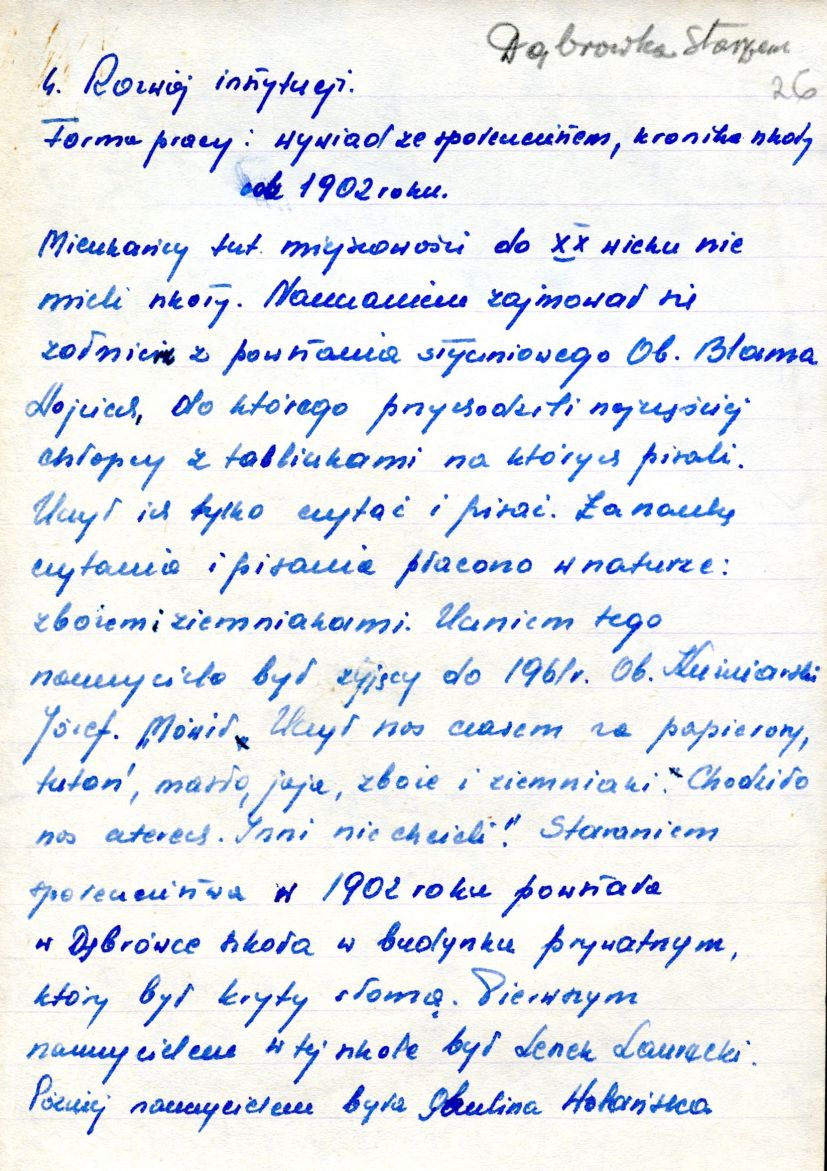 Dąbrowka Starzeń
26
4. Rozwój instytucji.
Forma pracy: wywiad ze społeczeństwem, kronika szkoły
1902 roku.
Mieszkańcy tut. miejscowości do XX wieku nie
mieli szkoły. Nauczaniem zajmował się
żołnierz z powstania styczniowego Ob. Błama
Wojciech, do którego przychodzili najczęściej
chłopcy z tabliczkami na których pisali.
Uczył ich tylko czytać i pisać. Za naukę
czytania i pisania płacono w naturze:
zbożem i ziemniakami. Uczniem tego
nauczyciela był żyjący do 1961r. Ob. Kuźniarski
Józef. "Mówił, Uczył nas czasem za papierosy,
tutoń, masło, jaja, zboże i ziemniaki." Chodziło
nas czterech. Inni nie chcieli!" Staraniem
społeczeństwa w 1902 roku powstała
w Dąbrówce szkoła w budynku prywatnym,
który był kryty słomą. Pierwszym
nauczycielem w tej szkole był Lenek
Później nauczycielem była Paulina